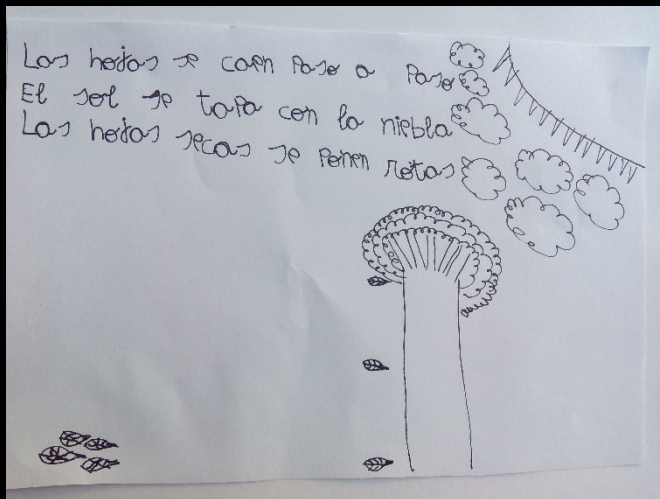 Las hojas se caen paso a paso
El sol se tapa con la niebla
Las hojas secas se ponen rotas